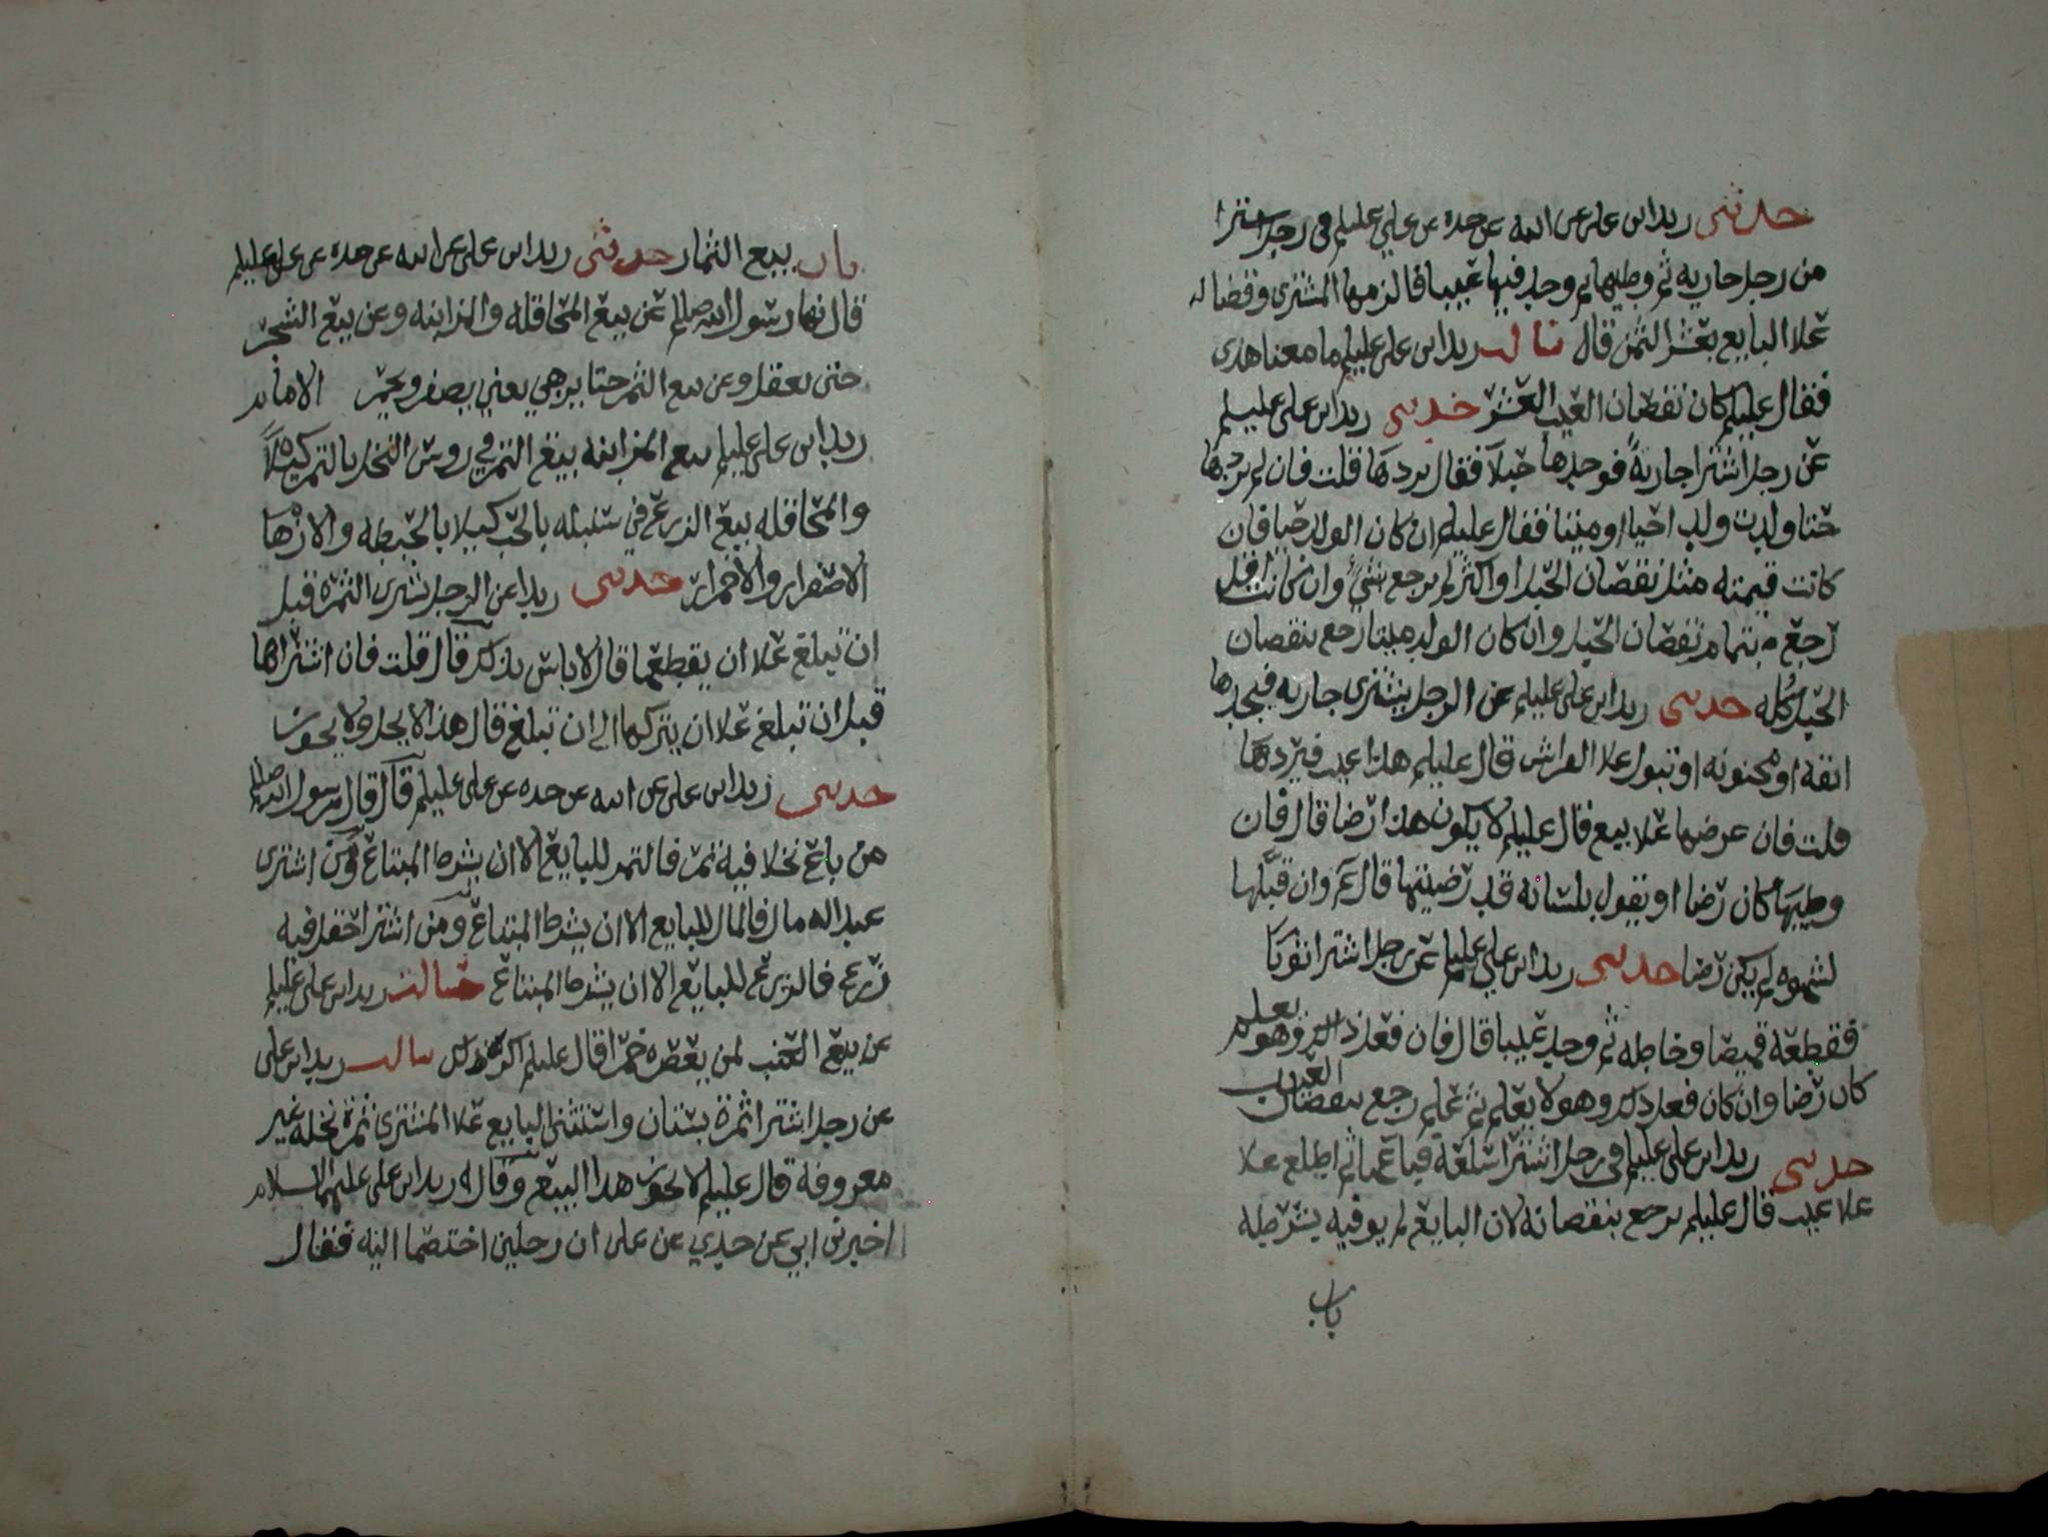 حدثني زيد ابن علي عن ابيه عن جده عن علي عليلم في رجل اشترا
من رجل جاريه ثم وطيها ثم وجد فيها عيبا فالزمها المشتري وقضا له
علا البايع بعشر الثمن قال سالت زيد ابن علي عليلم ما معنا هذي
فقال عليلم كان نقصان العيب العشر حدثني زيد ابن علي عليلم
عن رجل اشترا جارية فوجدها حبلا فقال يردها قلت فان لم يردها
حتا ولدت ولدا حيا او ميتا فقال عليلم ان كان الولد حيا فان
كانت قيمته مثل نقصان الحبل او اكثر لم يرجع بشي وان كانت اقل
رجع بتمام نقصان الحبل وان كان الولد ميتا رجع بنقصان
الحبل كله حدثني زيد ابن علي عليلم عن الرجل يشتري جاريه فيجدها
ابقه او مجنونه او تبول علا الفراش قال عليلم هذا عيب فيردها
قلت فان عرضها علا بيع قال عليلم لا يكون هذا رضا قال فان
وطيها كان رضا او يقول بلسانه قد رضيتها قال عم وان قبلها
لشهوه لم يكن رضا حدثني زيد ابن علي عليلم عن رجل اشترا ثوبا
فقطعه قميصا وخاطه ثم وجد عيبا قال فان فعل ذلك وهو يعلم
كان رضا وان كان فعل ذلك وهو لا يعلم ثم علم رجع بنقصان العيب
حدثني زيد ابن علي عليلم في رجل اشترا سلعة فباعها ثم اطلع علا
علا عيب قال عليلم يرجع بنقصانه لان البايع لم يوفيه بشرطه
باب
باب بيع الثمار حدثني زيد ابن علي عن ابيه عن جده عن علي عليلم
قال نها رسول الله صللم عن بيع المحاقله والمزابنه وعن بيع الشجر
حتى يعقل وعن بيع الثمر حتا يزهي يعني يصفر ويحمر الامام
زيد ابن علي عليلم بيع المزابنه بيع التمر في روس النخل بالتمر كيلا
والمحاقله بيع الزرع في سنبله بالحب كيلا بالحنطه والازها
الاصفرار والاحمرار حدثني زيدا عن الرجل يشتري الثمره قبل
ان تبلغ علا ان يقطعها قال لا باس بذلك قال قلت فان اشتراها
قبل ان تبلغ علا ان يتركها الى ان تبلغ قال هذا لا يحل ولا يجوز
حدثني زيد ابن علي عن ابيه عن جده عن علي عليلم قال قال رسول الله صللم
من باع نخلا فيه ثمر فالثمر للبايع الا ان يشرط المبتاع ومن اشترى
عبدا له مال فالمال للبايع الا ان يشرط المبتاع ومن اشترا حقلا فيه
زرع فالزرع للبايع الا ان يشرط المبتاع سالت زيد ابن علي عليلم
عن بيع العنب لمن يعصره خمرا قال عليلم اكره ذلك سالت زيد ابن علي
عن رجل اشترا ثمرة بستان واستثنى البايع علا المشتري ثمرة نخله غير
معروفة قال عليلم لا يجوز هذا البيع وقال زيد ابن علي عليهما السلام
اخبرني ابي عن جدي عن علي ان رجلين اختصما اليه فقال